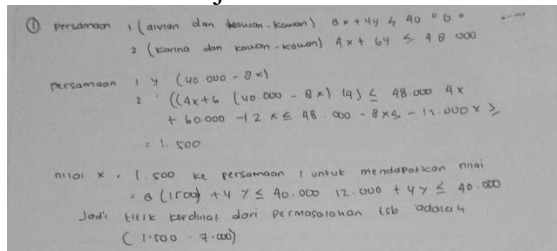 ① Persamaan 1 (aivian dan kawan-kawan) 8x + 4y ≤ 40 000
2 (Karina dan kawan-kawan) 4x + 6y ≤ 48 000
Persamaan 1 y (40.000 - 8x)
2 ((4x+6 (40.000 - 8x) 14) ≤ 48.000 4x
+ 60.000 - 12 x ≤ 48.000 - 8x ≤ - 12.000 x ≥
= 1.500
nilai x = 1.500 ke persamaan 1 untuk mendapatkan nilai
= 8 (1500) + 4 y ≤ 40.000 12.000 + 4y ≤ 40.000
Jadi titik kordinat dari permasalahan tsb adalah
(1.500 . 7.000)